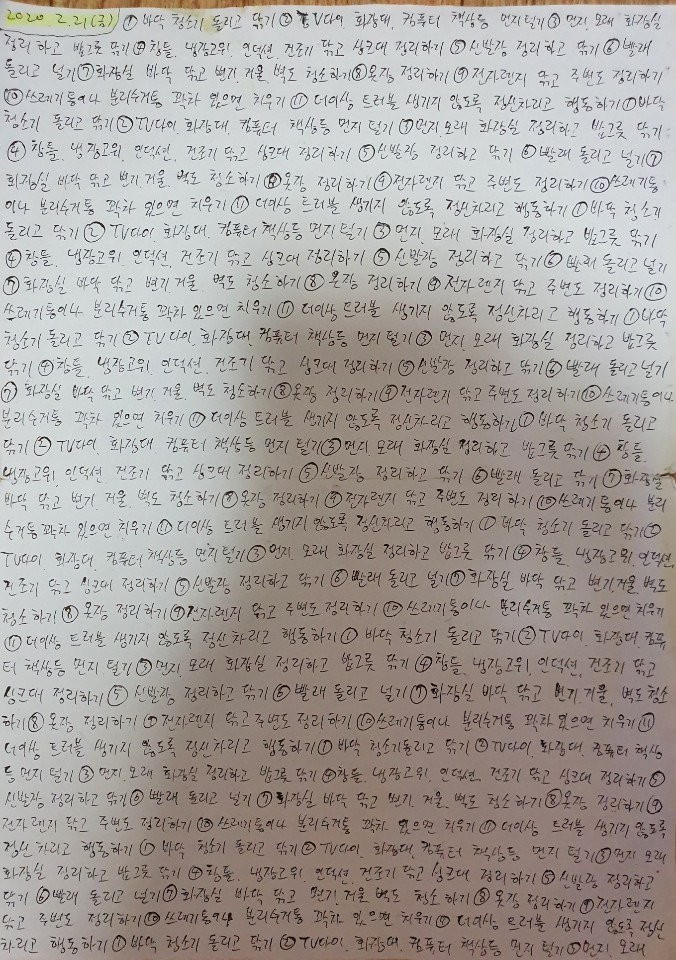 2020 2.21(금) ① 바닥 청소기 돌리고 닦기 ② TV다이, 화장대, 컴퓨터 책상등 먼지털기 ③ 먼지, 모래 화장실
정리하고 밥그릇 닦기 ④ 창틀, 냉장고위, 인덕션, 건조기 닦고 싱크대 정리하기 ⑤ 신발장 정리하고 닦기 ⑥ 빨래
돌리고 널기 ⑦ 화장실 바닥 닦고 변기, 거울, 벽도 청소하기 ⑧ 옷장 정리하기 ⑨ 전자렌지 닦고 주변도 정리하기
⑩ 쓰레기통이나 분리수거통 꽉차 있으면 치우기 ⑪ 더이상 트러블 생기지 않도록 정신차리고 행동하기 ① 바닥
청소기 돌리고 닦기 ② TV다이, 화장대, 컴퓨터 책상등 먼지 털기 ③ 먼지, 모래 화장실 정리하고 밥그릇 닦기
④ 창틀, 냉장고위, 인덕션, 건조기 닦고 싱크대 정리하기 ⑤ 신발장 정리하고 닦기 ⑥ 빨래 돌리고 널기 ⑦
화장실 바닥 닦고 변기, 거울, 벽도 청소하기 ⑧ 옷장 정리하기 ⑨ 전자렌지 닦고 주변도 정리하기 ⑩ 쓰레기통
이나 분리수거통 꽉차 있으면 치우기 ⑪ 더이상 트러블 생기지 않도록 정신차리고 행동하기 ① 바닥 청소기
돌리고 닦기 ② TV다이, 화장대, 컴퓨터 책상등 먼지털기 ③ 먼지, 모래 화장실 정리하고 밥그릇 닦기
④ 창틀, 냉장고위, 인덕션, 건조기 닦고 싱크대 정리하기 ⑤ 신발장 정리하고 닦기 ⑥ 빨래 돌리고 널기
⑦ 화장실 바닥 닦고 변기, 거울, 벽도 청소하기 ⑧ 옷장 정리하기 ⑨ 전자렌지 닦고 주변도 정리하기 ⑩
쓰레기통이나 분리수거통 꽉차 있으면 치우기 ⑪ 더이상 트러블 생기지 않도록 정신차리고 행동하기 ① 바닥
청소기 돌리고 닦기 ② TV다이, 화장대, 컴퓨터 책상등 먼지 털기 ③ 먼지, 모래 화장실 정리하고 밥그릇
닦기 ④ 창틀, 냉장고위, 인덕션, 건조기 닦고 싱크대 정리하기 ⑤ 신발장 정리하고 닦기 ⑥ 빨래 돌리고 널기
⑦ 화장실 바닥 닦고 변기, 거울, 벽도 청소하기 ⑧ 옷장 정리하기 ⑨ 전자렌지 닦고 주변도 정리하기 ⑩ 쓰레기통이나
분리수거통 꽉차 있으면 치우기 ⑪ 더이상 트러블 생기지 않도록 정신차리고 행동하기 ① 바닥 청소기 돌리고
닦기 ② TV다이, 화장대, 컴퓨터 책상등 먼지 털기 ③ 먼지, 모래 화장실 정리하고 밥그릇 닦기 ④ 창틀,
냉장고위, 인덕션, 건조기 닦고 싱크대 정리하기 ⑤ 신발장 정리하고 닦기 ⑥ 빨래 돌리고 닦기 ⑦ 화장실
바닥 닦고 변기, 거울, 벽도 청소하기 ⑧ 옷장 정리하기 ⑨ 전자렌지 닦고 주변도 정리하기 ⑩ 쓰레기통이나 분리
수거통 꽉차 있으면 치우기 ⑪ 더이상 트러블 생기지 않도록 정신차리고 행동하기 ① 바닥 청소기 돌리고 닦기 ②
TV다이, 화장대, 컴퓨터 책상등 먼지털기 ③ 먼지, 모래 화장실 정리하고 밥그릇 닦기 ④ 창틀, 냉장고위, 인덕션,
건조기 닦고 싱크대 정리하기 ⑤ 신발장 정리하고 닦기 ⑥ 빨래 돌리고 널기 ⑦ 화장실 바닥 닦고 변기, 거울, 벽도
청소하기 ⑧ 옷장 정리하기 ⑨ 전자렌지 닦고 주변도 정리하기 ⑩ 쓰레기통이나 분리수거통 꽉차 있으면 치우기
⑪ 더이상 트러블 생기지 않도록 정신차리고 행동하기 ① 바닥 청소기 돌리고 닦기 ② TV다이, 화장대, 컴퓨
터 책상등 먼지 털기 ③ 먼지, 모래 화장실 정리하고 밥그릇 닦기 ④ 창틀, 냉장고위, 인덕션, 건조기 닦고
싱크대 정리하기 ⑤ 신발장 정리하고 닦기 ⑥ 빨래 돌리고 널기 ⑦ 화장실 바닥 닦고 변기, 거울, 벽도 청소
하기 ⑧ 옷장 정리하기 ⑨ 전자렌지 닦고 주변도 정리하기 ⑩ 쓰레기통이나 분리수거통 꽉차 있으면 치우기 ⑪
더이상 트러블 생기지 않도록 정신차리고 행동하기 ① 바닥 청소기돌리고 닦기 ② TV다이, 화장대, 컴퓨터 책상
등 먼지 털기 ③ 먼지, 모래 화장실 정리하고 밥그릇 닦기 ④ 창틀, 냉장고위, 인덕션, 건조기 닦고 싱크대 정리하기 ⑤
신발장 정리하고 닦기 ⑥ 빨래 돌리고 널기 ⑦ 화장실 바닥 닦고 변기, 거울, 벽도 청소하기 ⑧ 옷장 정리하기 ⑨
전자렌지 닦고 주변도 정리하기 ⑩ 쓰레기통이나 분리수거통 꽉차 있으면 치우기 ⑪ 더이상 트러블 생기지 않도록
정신차리고 행동하기 ① 바닥 청소기 돌리고 닦기 ② TV다이, 화장대, 컴퓨터 책상등 먼지 털기 ③ 먼지, 모래
화장실 정리하고 밥그릇 닦기 ④ 창틀, 냉장고위, 인덕션, 건조기 닦고 싱크대 정리하기 ⑤ 신발장 정리하고
닦기 ⑥ 빨래 돌리고 널기 ⑦ 화장실 바닥 닦고 변기, 거울, 벽도 청소하기 ⑧ 옷장 정리하기 ⑨ 전자렌지
닦고 주변도 정리하기 ⑩ 쓰레기통이나 분리수거통 꽉차 있으면 치우기 ⑪ 더이상 트러블 생기지 않도록 정신
차리고 행동하기 ① 바닥 청소기 돌리고 닦기 ② TV다이, 화장대, 컴퓨터 책상등 먼지 털기 ③ 먼지, 모래